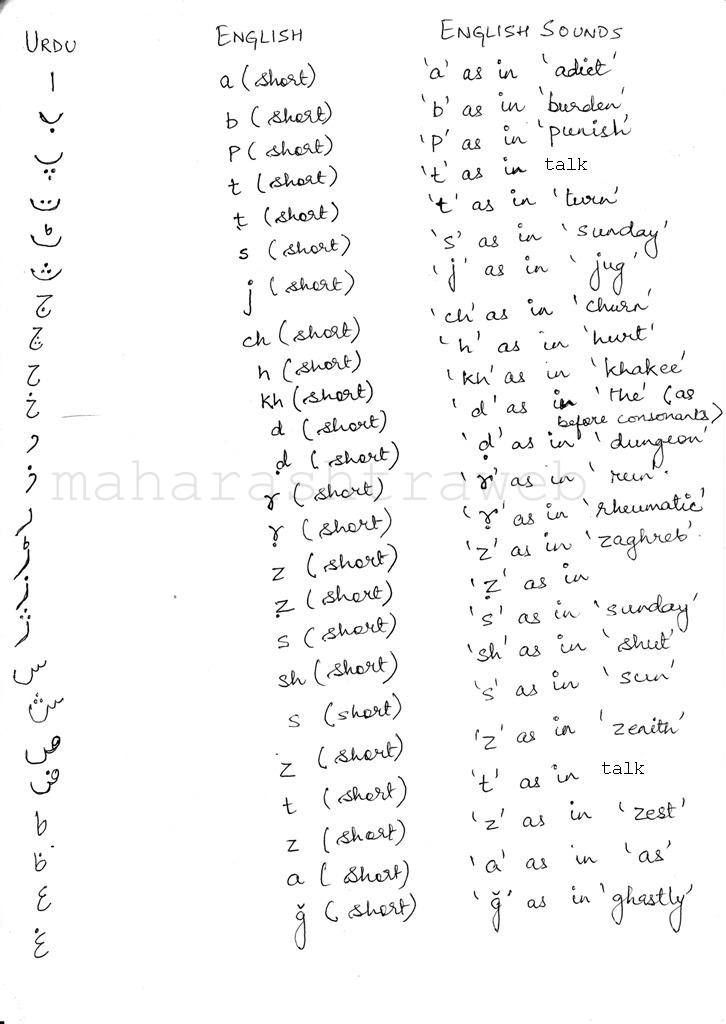 URDU ENGLISH ENGLISH SOUNDS
ا a (short) 'a' as in 'adict'
ب b (short) 'b' as in 'burden'
پ p (short) 'p' as in 'punish'
ت t (short) 't' as in talk
ٹ ṭ (short) 'ṭ' as in 'turn'
ث s (short) 's' as in 'sunday'
ج j (short) 'j' as in 'jug'
چ ch (short) 'ch' as in 'churn'
ح h (short) 'h' as in 'hurt'
خ kh (short) 'kh' as in 'khakee'
د d (short) 'd' as in 'the' (as
before consonants)
ذ ḍ (short) 'ḍ' as in 'dungeon'
maharashtraweb
ر r (short) 'r' as in 'run'.
ڑ ṛ (short) 'ṛ' as in 'rheumatic'
ز z (short) 'z' as in 'zaghreb'.
ژ ẓ (short) 'ẓ' as in
س s (short) 's' as in 'sunday'
ش sh (short) 'sh' as in 'shut'
ص s (short) 's' as in 'sun'
ض z (short) 'z' as in 'zenith'
ط t (short) 't' as in talk
ظ z (short) 'z' as in 'zest'
ع a (short) 'a' as in 'as'
غ ğ (short) 'ğ' as in 'ghastly'